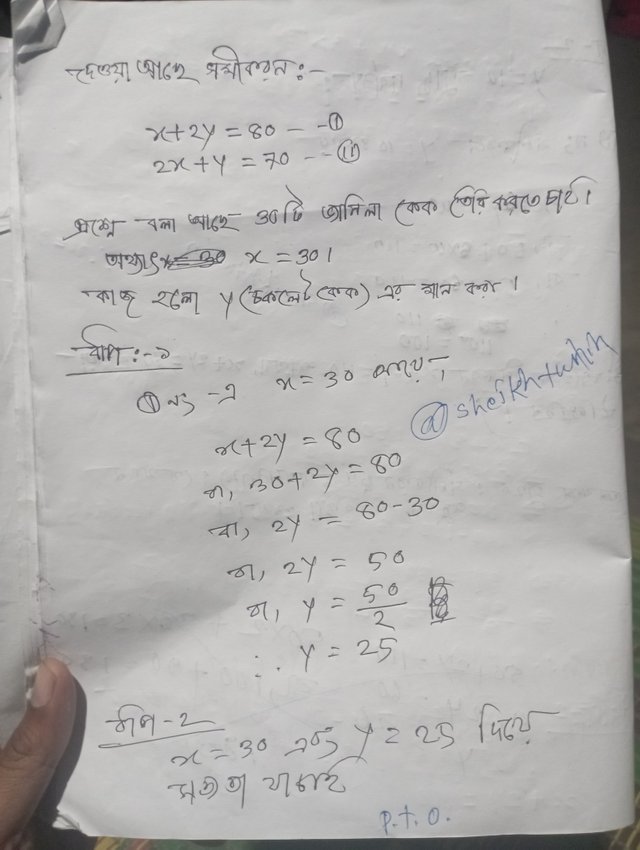 দেওয়া আছে সমীকরন :-
x+2y = 80 -- ①
2x+y = 70 -- ⑪
প্রশ্নে বলা আছে 30টি ভানিলা কেক তৈরি করতে চাই।
অর্থাৎ x = 30।
কাজ হলো y (চকলেট কেক) এর মান বের করা।
ধাপ :- ১
① নং -এ x = 30 বসায়,
@sheikhtuhin
x+2y = 80
বা, 30+2y = 80
বা, 2y = 80-30
বা, 2y = 50
বা, y = 50/2
∴ y = 25
ধাপ - ২
x = 30 এবং y = 25 দিয়ে
সত্যতা যাচাই
P.t.o.